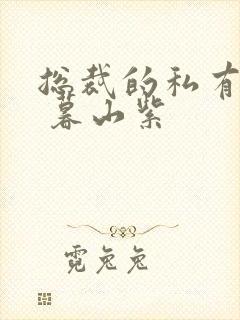 总裁的私有
暮山紫
霓兔兔